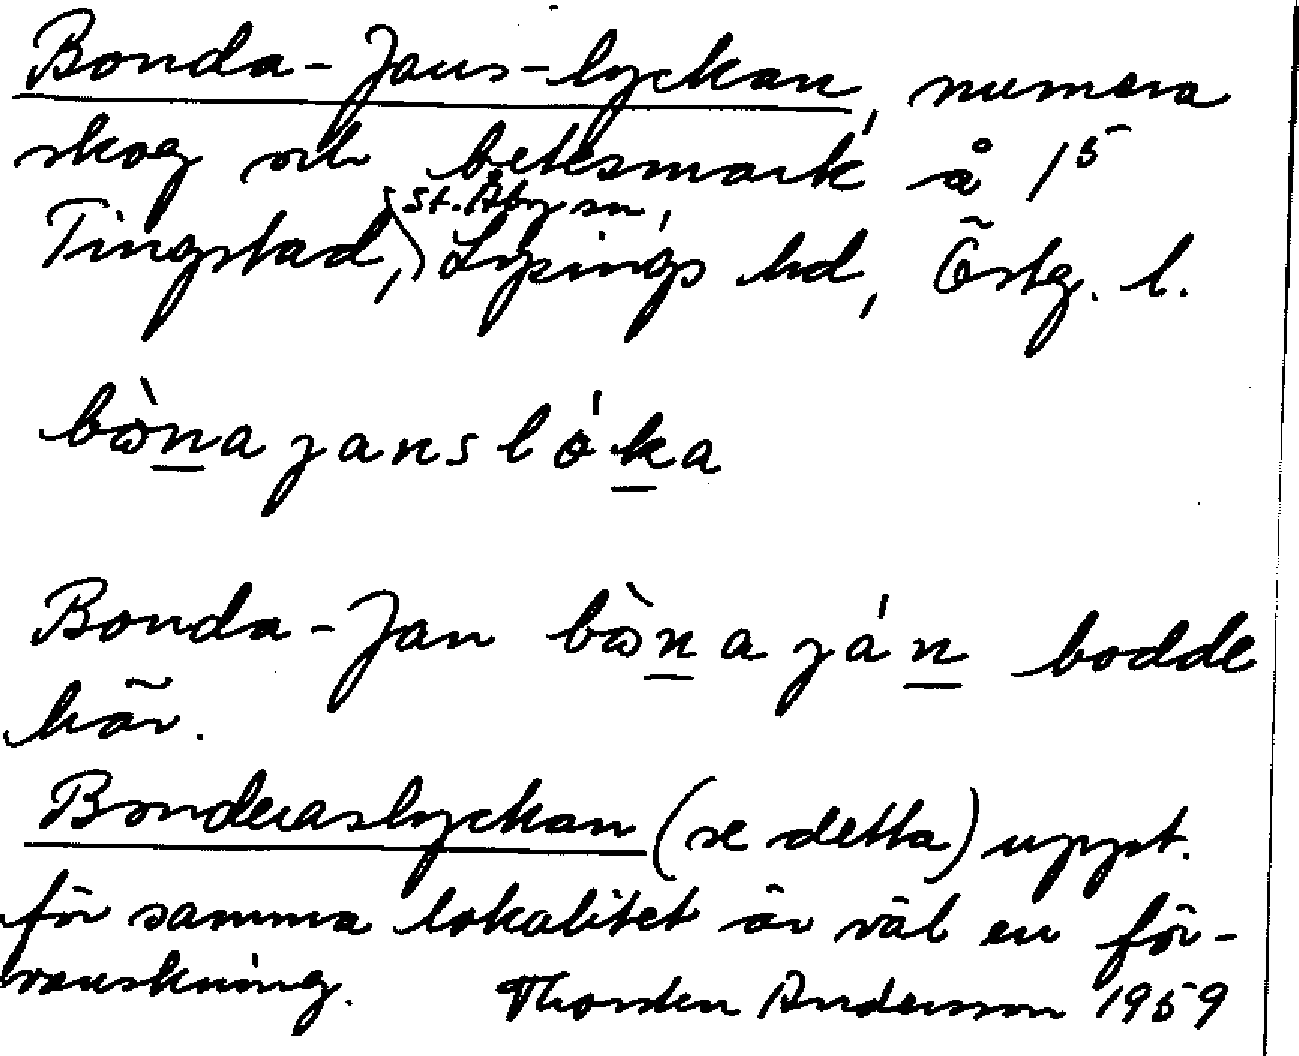 Bonda-Jans-lyckan, numera
skog och betesmark å 1⁵
Tingstad, St. Åby sn, Lysings hd, Östg. l.
bò̀n̲a jansló́k̲a
Bonda-Jan bòn̲a ján̲ bodde
här.
Bonderaslyckan (se detta) uppt.
för samma lokalitet är väl en för-
vanskning. Thorsten Andersson 1959